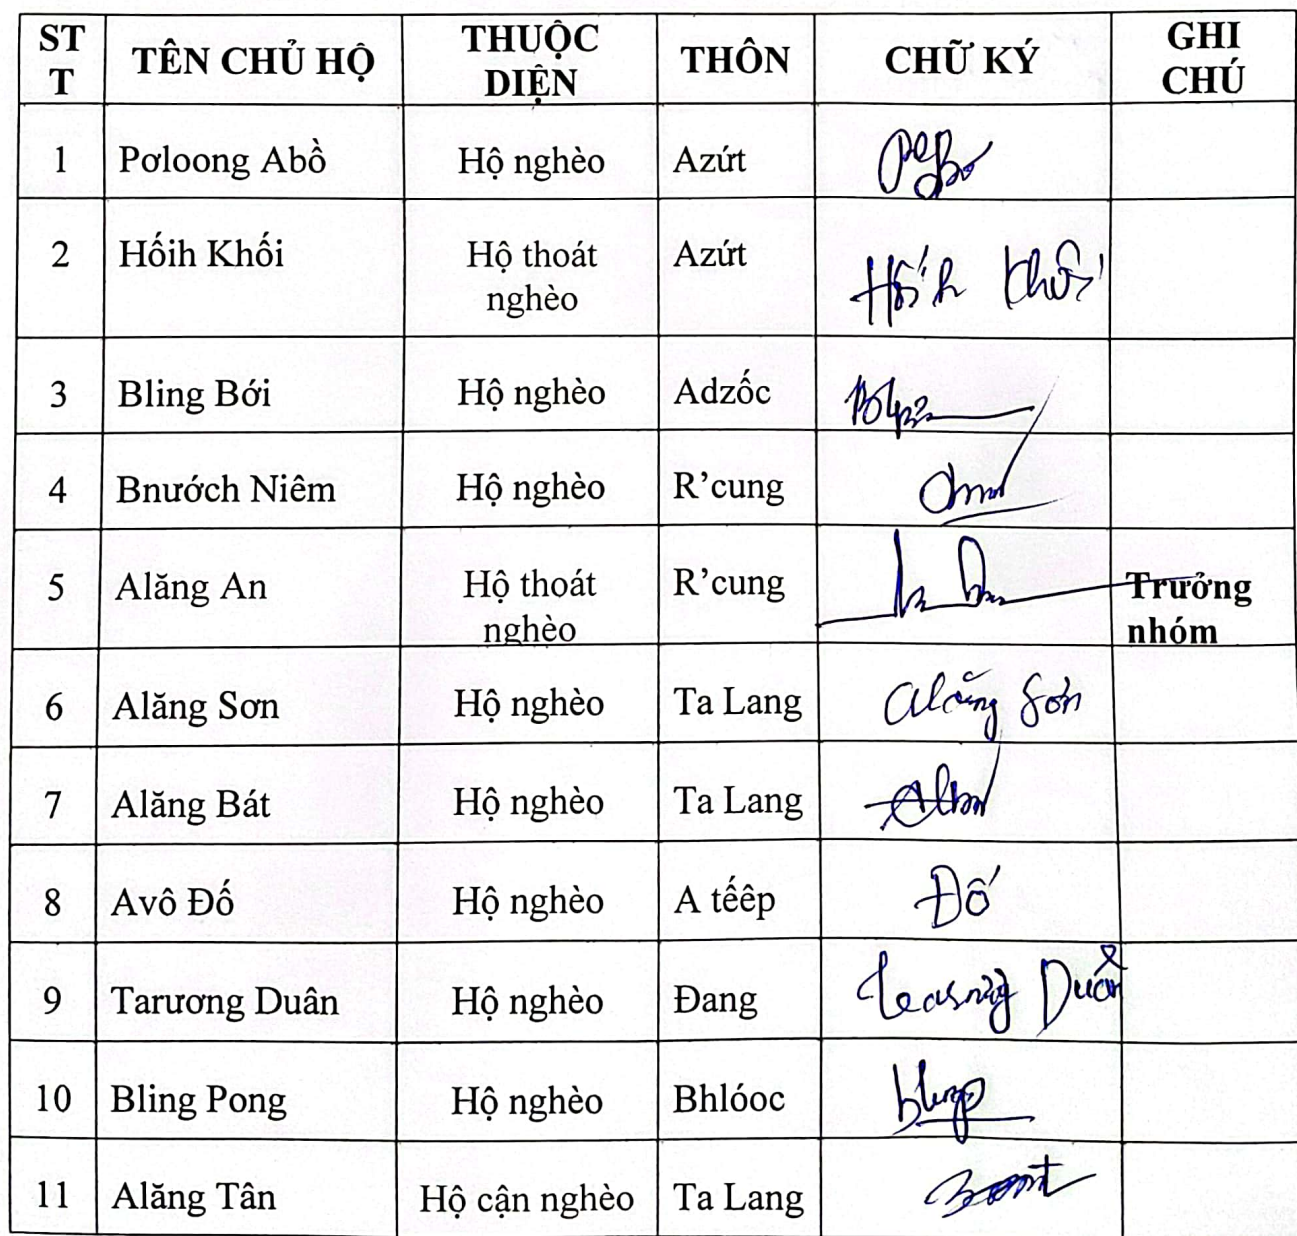 STT TÊN CHỦ HỘ THUỘC DIỆN THÔN CHỮ KÝ GHI CHÚ
1 Pơloong Abồ Hộ nghèo Azứt
2 Hốih Khối Hộ thoát nghèo Azứt Hốih Khối
3 Bling Bới Hộ nghèo Adzốc
4 Bnướch Niêm Hộ nghèo R'cung
5 Alăng An Hộ thoát nghèo R'cung Trưởng nhóm
6 Alăng Sơn Hộ nghèo Ta Lang Alăng Sơn
7 Alăng Bát Hộ nghèo Ta Lang
8 Avô Đố Hộ nghèo A tếêp Đố
9 Tarương Duân Hộ nghèo Đang Duân
10 Bling Pong Hộ nghèo Bhlóoc
11 Alăng Tân Hộ cận nghèo Ta Lang